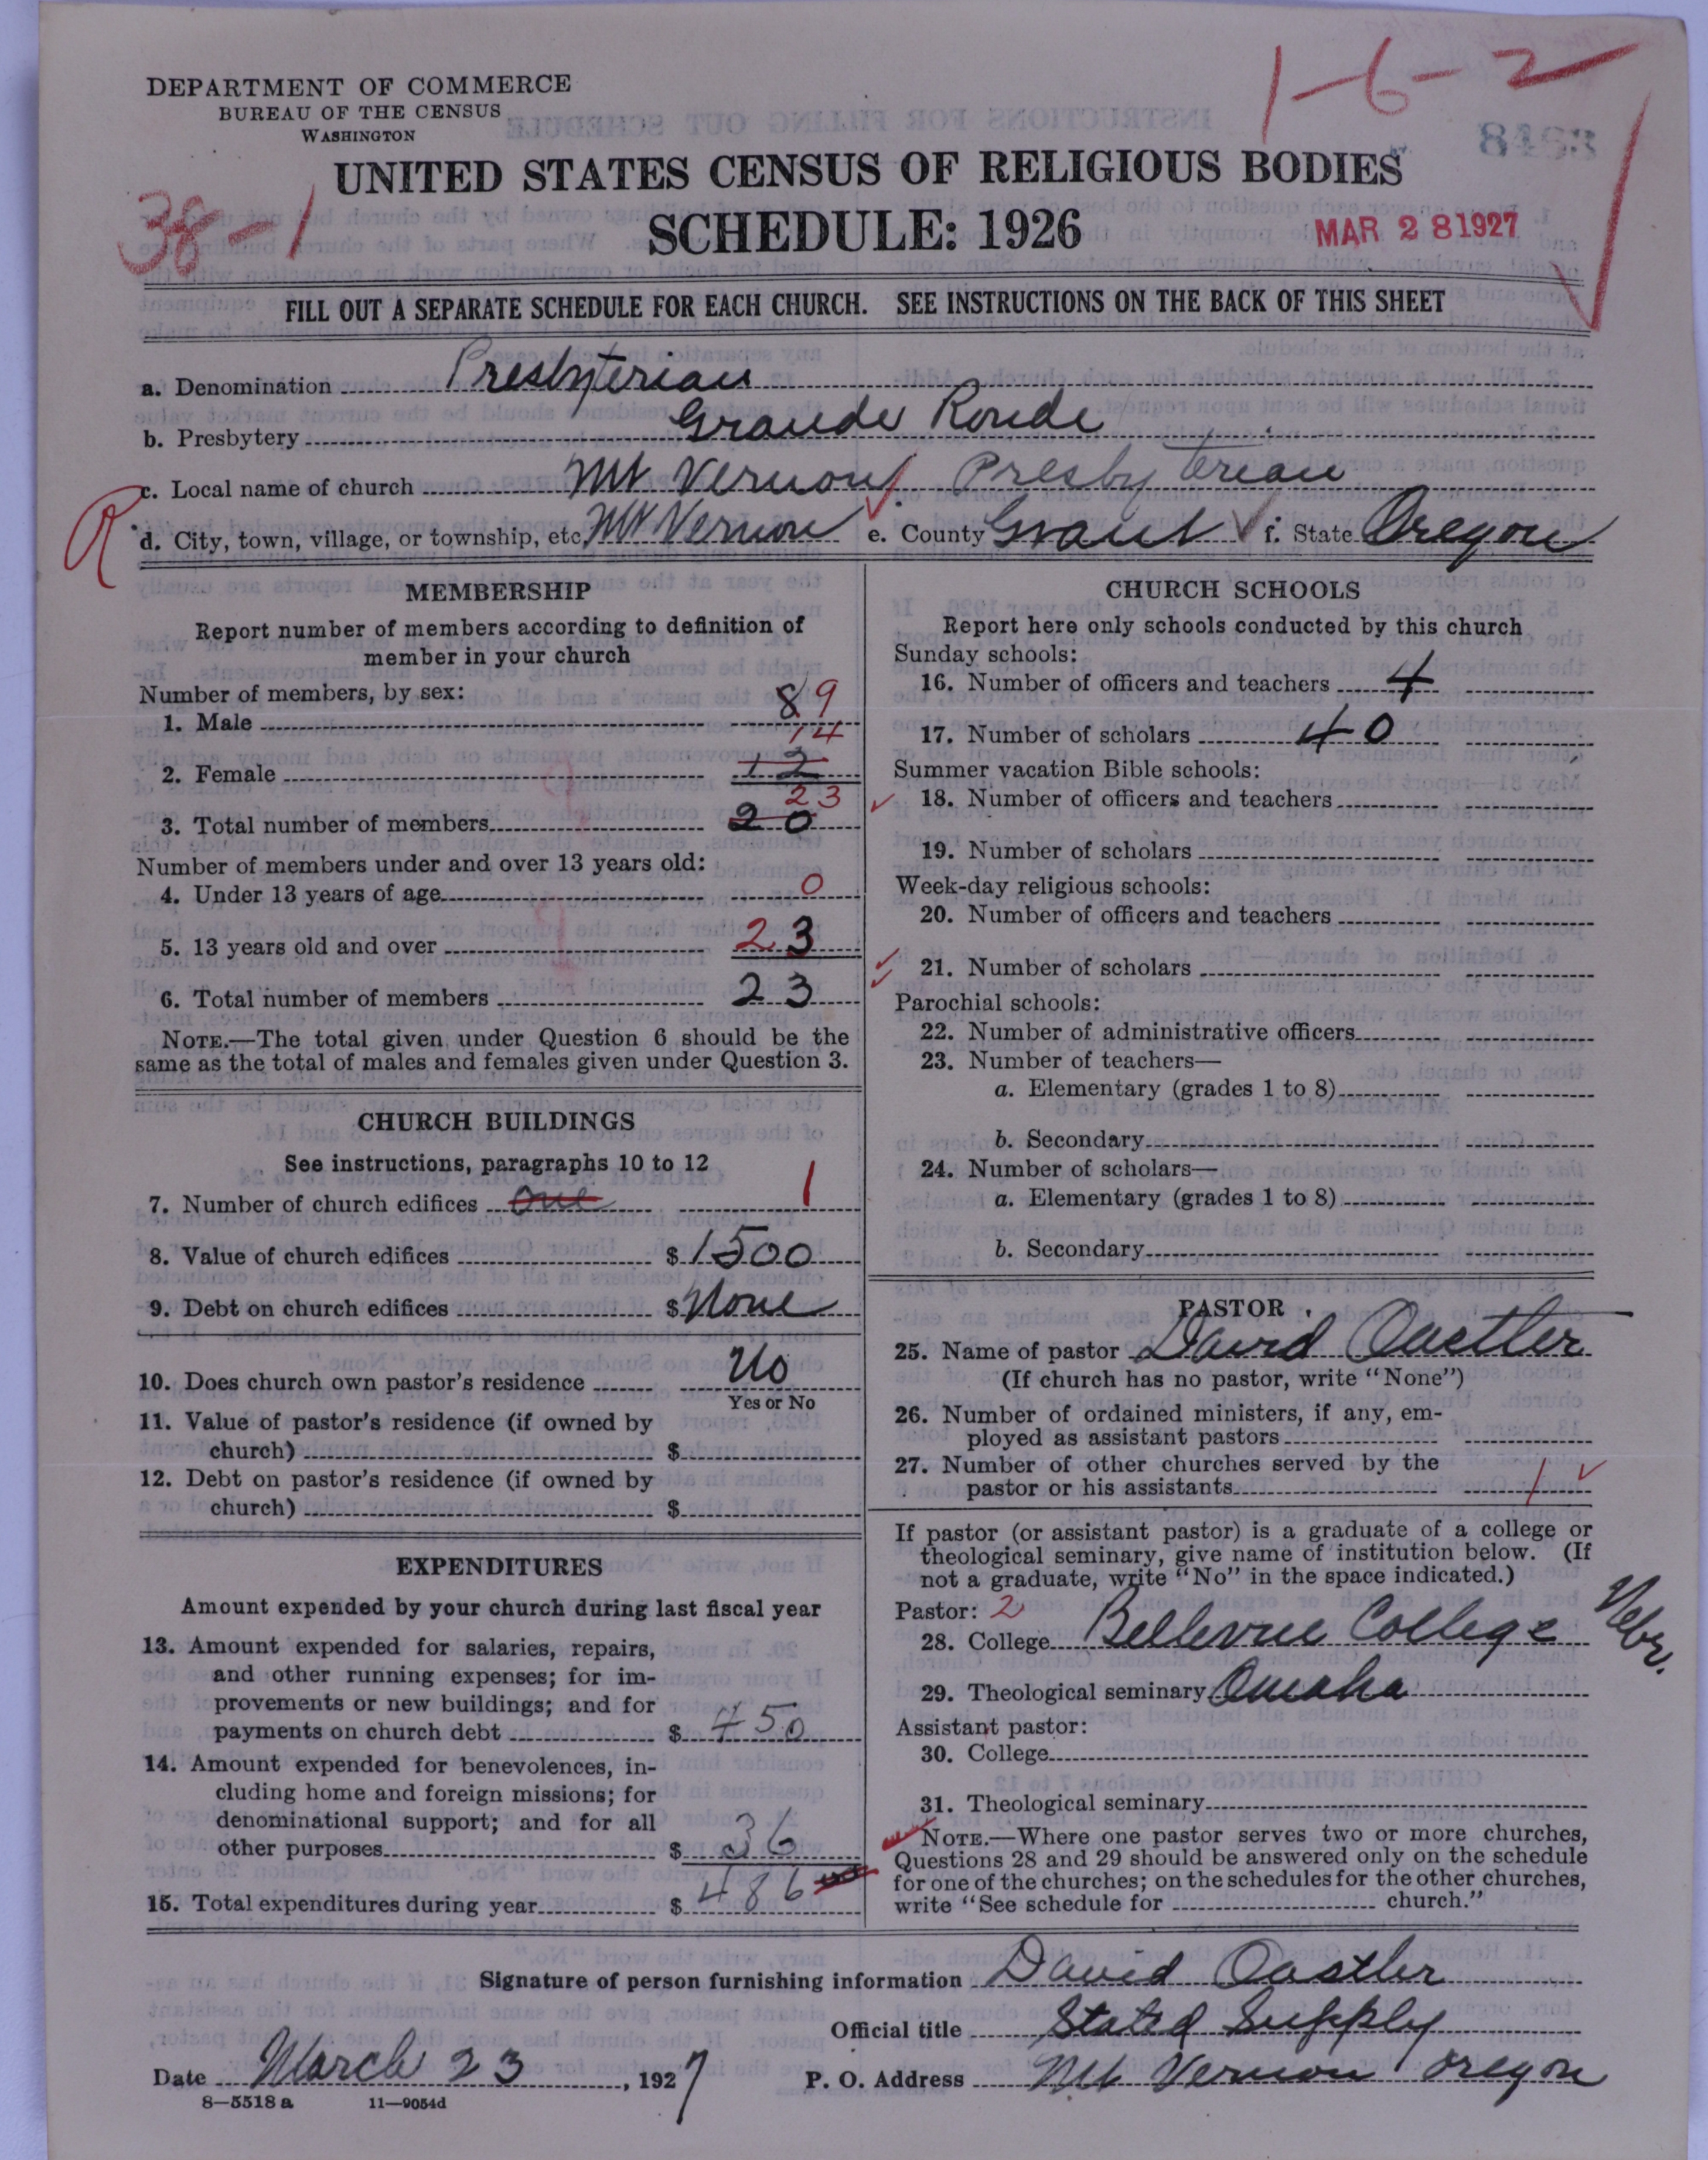 1-6-2
DEPARTMENT OF COMMERCE
BUREAU OF THE CENSUS
WASHINGTON
UNITED STATES CENSUS OF RELIGIOUS BODIES
38-1
SCHEDULE: 1926
MAR 28 1927
FILL OUT A SEPARATE SCHEDULE FOR EACH CHURCH. SEE INSTRUCTIONS ON THE BACK OF THIS SHEET
a. Denomination Presbyterian
b. Presbytery Grande Ronde
c. Local name of church Mt Vernon Presbyterian
R
d. City, town, village, or township, etc. Mt Vernon e. County Grant f. State Oregon
MEMBERSHIP
Report number of members according to definition of
member in your church
Number of members, by sex:
1. Male 8 9
14
2. Female 12
23
3. Total number of members 20
Number of members under and over 13 years old:
4. Under 13 years of age 0
5. 13 years old and over 23
6. Total number of members 23
NOTE.—The total given under Question 6 should be the
same as the total of males and females given under Question 3.
CHURCH BUILDINGS
See instructions, paragraphs 10 to 12
7. Number of church edifices One 1
8. Value of church edifices $ 1500
9. Debt on church edifices $ None
10. Does church own pastor's residence No
Yes or No
11. Value of pastor's residence (if owned by
church) $
12. Debt on pastor's residence (if owned by
church) $
EXPENDITURES
Amount expended by your church during last fiscal year
13. Amount expended for salaries, repairs,
and other running expenses; for im-
provements or new buildings; and for
payments on church debt $ 450
14. Amount expended for benevolences, in-
cluding home and foreign missions; for
denominational support; and for all
other purposes $ 36
15. Total expenditures during year $ 486
CHURCH SCHOOLS
Report here only schools conducted by this church
Sunday schools:
16. Number of officers and teachers 4
17. Number of scholars 40
Summer vacation Bible schools:
18. Number of officers and teachers
19. Number of scholars
Week-day religious schools:
20. Number of officers and teachers
21. Number of scholars
Parochial schools:
22. Number of administrative officers
23. Number of teachers—
a. Elementary (grades 1 to 8)
b. Secondary
24. Number of scholars—
a. Elementary (grades 1 to 8)
b. Secondary
PASTOR
25. Name of pastor David Oastler
(If church has no pastor, write "None")
26. Number of ordained ministers, if any, em-
ployed as assistant pastors
27. Number of other churches served by the
pastor or his assistants 1
If pastor (or assistant pastor) is a graduate of a college or
theological seminary, give name of institution below. (If
not a graduate, write "No" in the space indicated.)
Pastor: 2
28. College Bellevue College Nebr.
29. Theological seminary Omaha
Assistant pastor:
30. College
31. Theological seminary
NOTE.—Where one pastor serves two or more churches,
Questions 28 and 29 should be answered only on the schedule
for one of the churches; on the schedules for the other churches,
write "See schedule for church."
Signature of person furnishing information David Oastler
Official title Stated Supply
Date March 23, 1927 P. O. Address Mt Vernon Oregon
8—5518 a 11—9054d